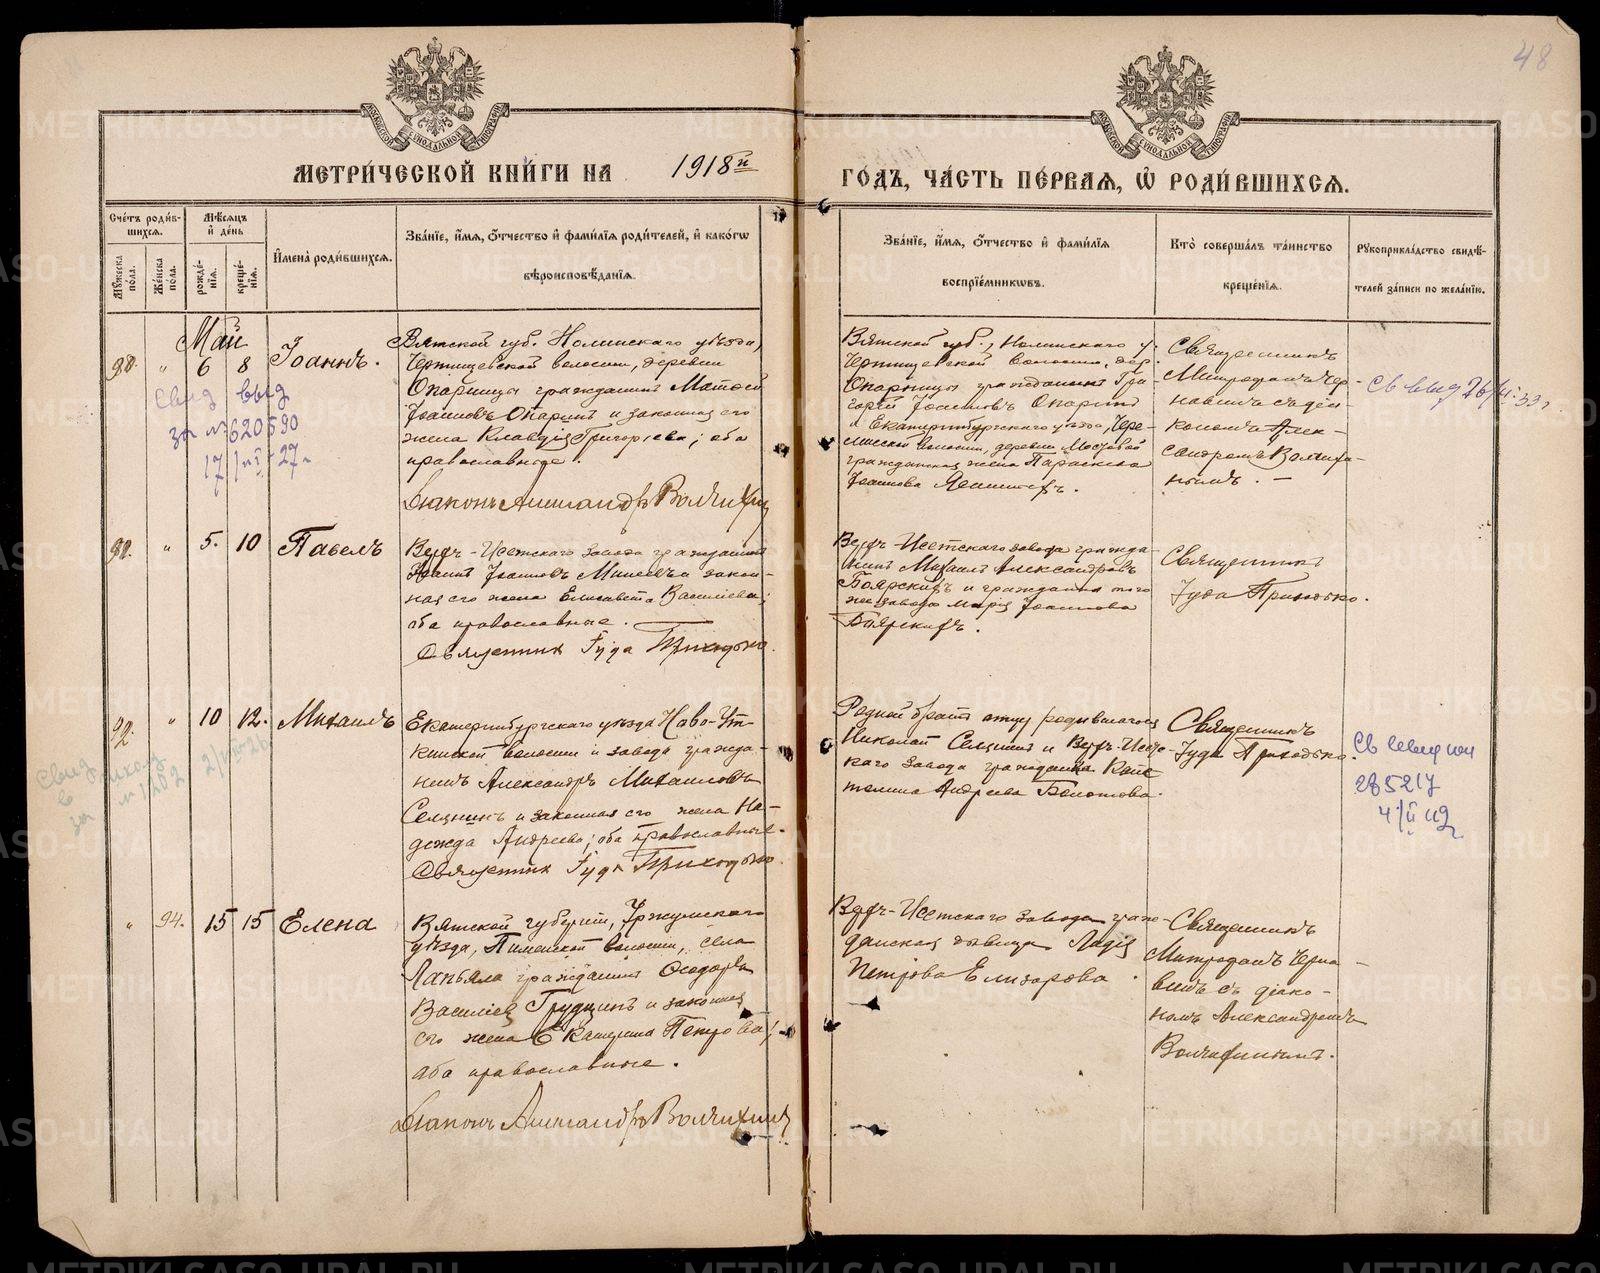 48
МЕТРИ́ЧЕСКОЙ КНИ́ГИ НА 1918й
ГО́ДЪ, ЧА́СТЬ ПЕ́РВАЯ, Ѡ҆ РОДИ́ВШИХСЯ.
Сче́тъ роди́вшихся.
Мꙋ́жеска по́ла.
Же́нска по́ла.
Мѣ́сяцъ и҆ де́нь
рожде́нія.
креще́нія.
И҆мена̀ роди́вшихся.
Зва́ніе, и҆́мя, ѻ҆́тчество и҆ фами́лія роди́телей, и҆ како́гѡ
вѣроисповѣ́данія.
Зва́ніе, и҆́мя, ѻ҆́тчество и҆ фами́лія
воспріе́мникѡвъ.
Кто̀ соверша́лъ та́инство
креще́нія.
Рꙋкоприкла́дство свидѣ́-
телей за́писи по жела́нію.
Май
90. " 6 8 Іоаннъ.
Вятской губ. Нолинскаго уѣзда,
волости, деревни
Опарницы гражданинъ Матѳей
Іоанновъ Опаринъ и законная его
жена Клавдія Григорьева; оба
православные.
Діаконъ Александръ Волчихин
Свид выд
за № 620590
17/ -27г
Вятской губ., Нолинскаго у.
волости, дер.
Опарницы гражданинъ Гри-
горій Іоанновъ Опаринъ
и Екатеринбургскаго уѣзда,
волости, деревни Мостовой
гражданская жена Параскева
Іоаннова
Священникъ
Митрофанъ Чер-
навинъ съ діа-
кономъ Алек-
сандромъ Волчихи-
нымъ. –
Св выд
91. " 5. 10 Павелъ
Верхъ-Исетскаго завода гражданинъ
Іоаннъ Іоанновъ Минеевъ и закон-
ная его жена Елисавета Василіева;
оба православные.
Священникъ Іуда Приходько.
Верхъ-Исетскаго завода гражда-
нинъ Михаилъ Александровъ
Боярскихъ и гражданка того
же завода Марія Іоаннова
Боярскихъ.
Священникъ
Іуда Приходько.
92. " 10 12. Михаилъ
Екатеринбургскаго уѣзда Ново-Ут-
кинской волости и завода гражда-
нинъ Александръ Михаиловъ
Селянинъ и законная его жена На-
дежда Андреева; оба православные.
Священникъ Іуда Приходько
Свид
№ 1202
Родной братъ отцу родившагося
Николай Селянинъ и Верхъ-Исет-
скаго завода гражданка Капи-
толина Андреева Болотова.
Священникъ
Іуда Приходько.
285217
" 94. 15 15 Елена
Вятской губерніи, Уржумскаго
уѣзда, волости, села
Лапьяла гражданинъ Ѳеодоръ
Василіев Грудцинъ и законная
его жена Екатерина Петрова;
оба православные.
Діаконъ Александръ Волчихинъ
Верхъ-Исетскаго завода граж-
данская дѣвица Лидія
Петрова Елизарова.
Священникъ
Митрофанъ Черна-
винъ съ діако-
номъ Александромъ
Волчихинымъ.
METRIKI.GASO-URAL.RU